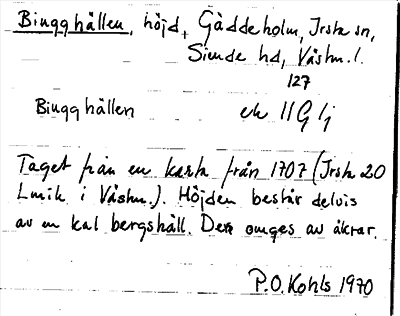 Bingghällen, höjd, Gäddeholm, Irsta sn,
Siende hd, Västm. l.
127
Bingghällen ek 11G 1j
Taget från en karta från 1707 (Irsta 20
Lmik i Västm.). Höjden består delvis
av en kal bergshäll. Den omges av åkrar.
P.O. Kohls 1970